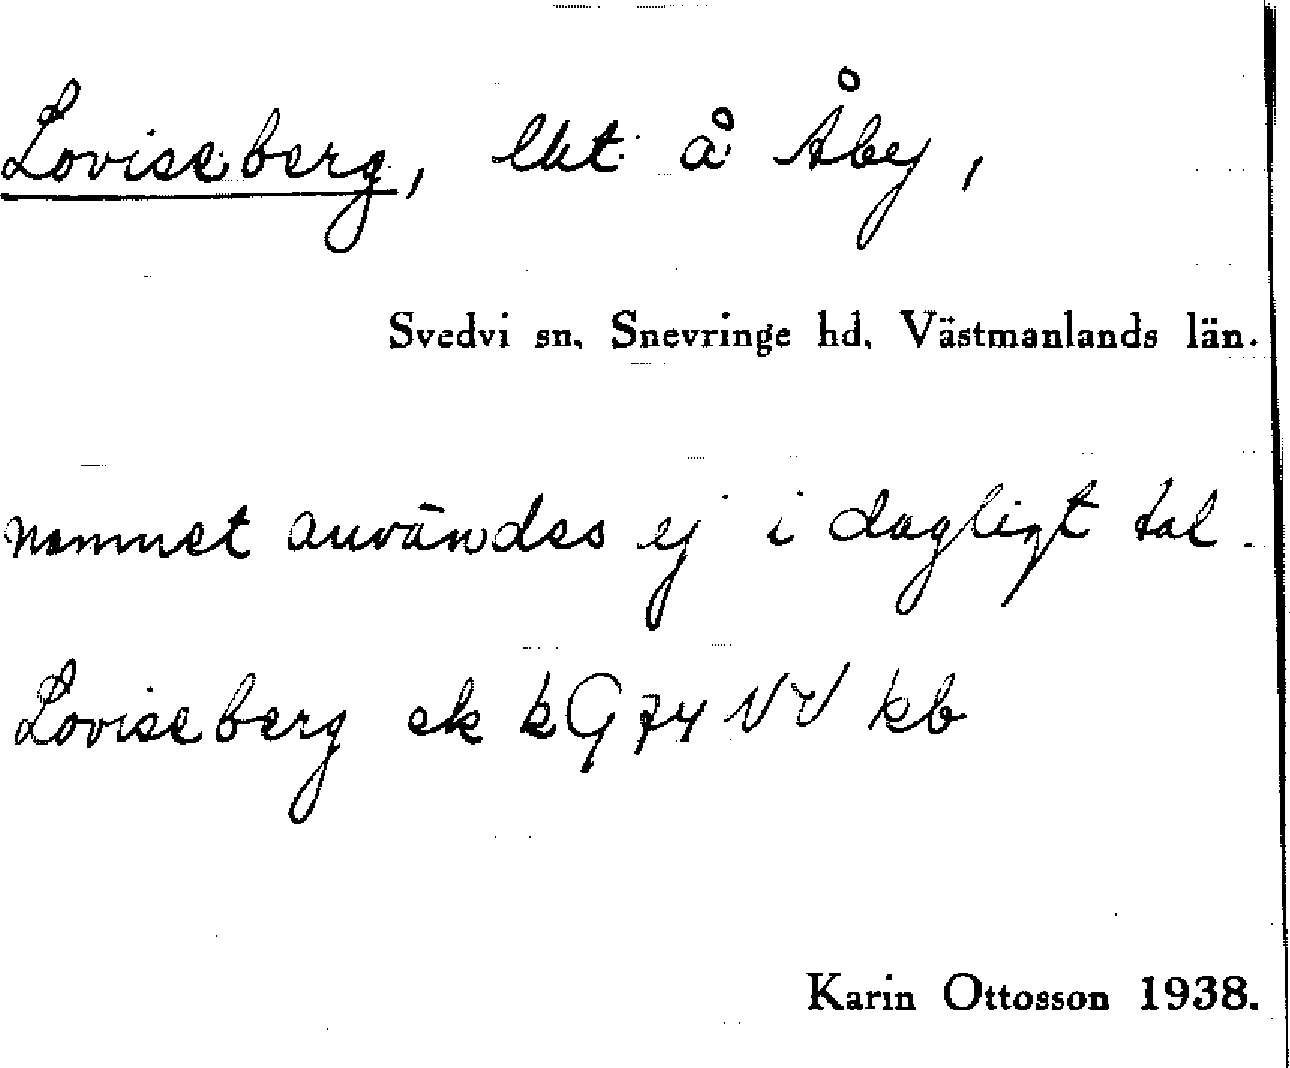 Loviseberg, lht å Åby,
Svedvi sn, Snevringe hd, Västmanlands län.
namnet användes ej i dagligt tal.
Loviseberg ek kG 74 NV kb
Karin Ottosson 1938.